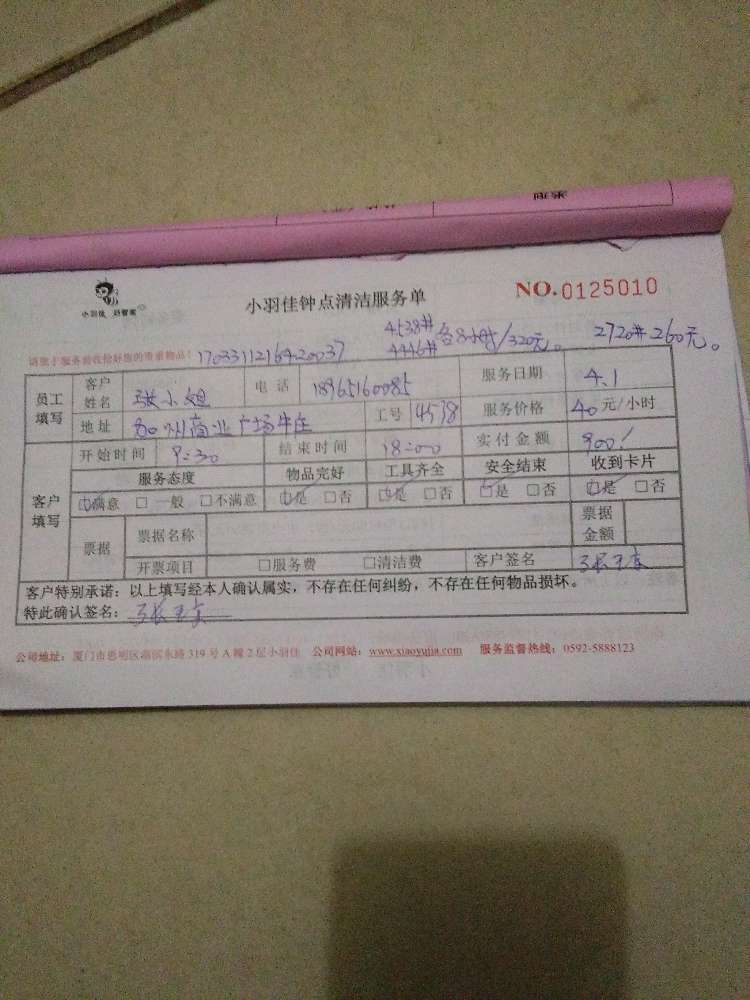 小羽佳 好管家
小羽佳钟点清洁服务单
NO.0125010
4538# 各8小时/320元。 2720#260元。
4446#
请您于服务前收检好您的贵重物品! 1703311216420037
员工填写 客户姓名 张小姐 电话 18965160085 服务日期 4.1
地址 加州商业广场牛庄 工号 4538 服务价格 40元/小时
客户填写 开始时间 9:30 结束时间 18:00 实付金额 900/
服务态度 物品完好 工具齐全 安全结束 收到卡片
☑满意 □一般 □不满意 ☑是 □否 ☑是 □否 ☑是 □否 ☑是 □否
票据 票据名称 票据金额
开票项目 □服务费 □清洁费 客户签名
客户特别承诺:以上填写经本人确认属实,不存在任何纠纷,不存在任何物品损坏。
特此确认签名:
公司地址:厦门市思明区湖滨东路319号A幢2层小羽佳 公司网站:www.xiaoyujia.com 服务监督热线:0592-5888123